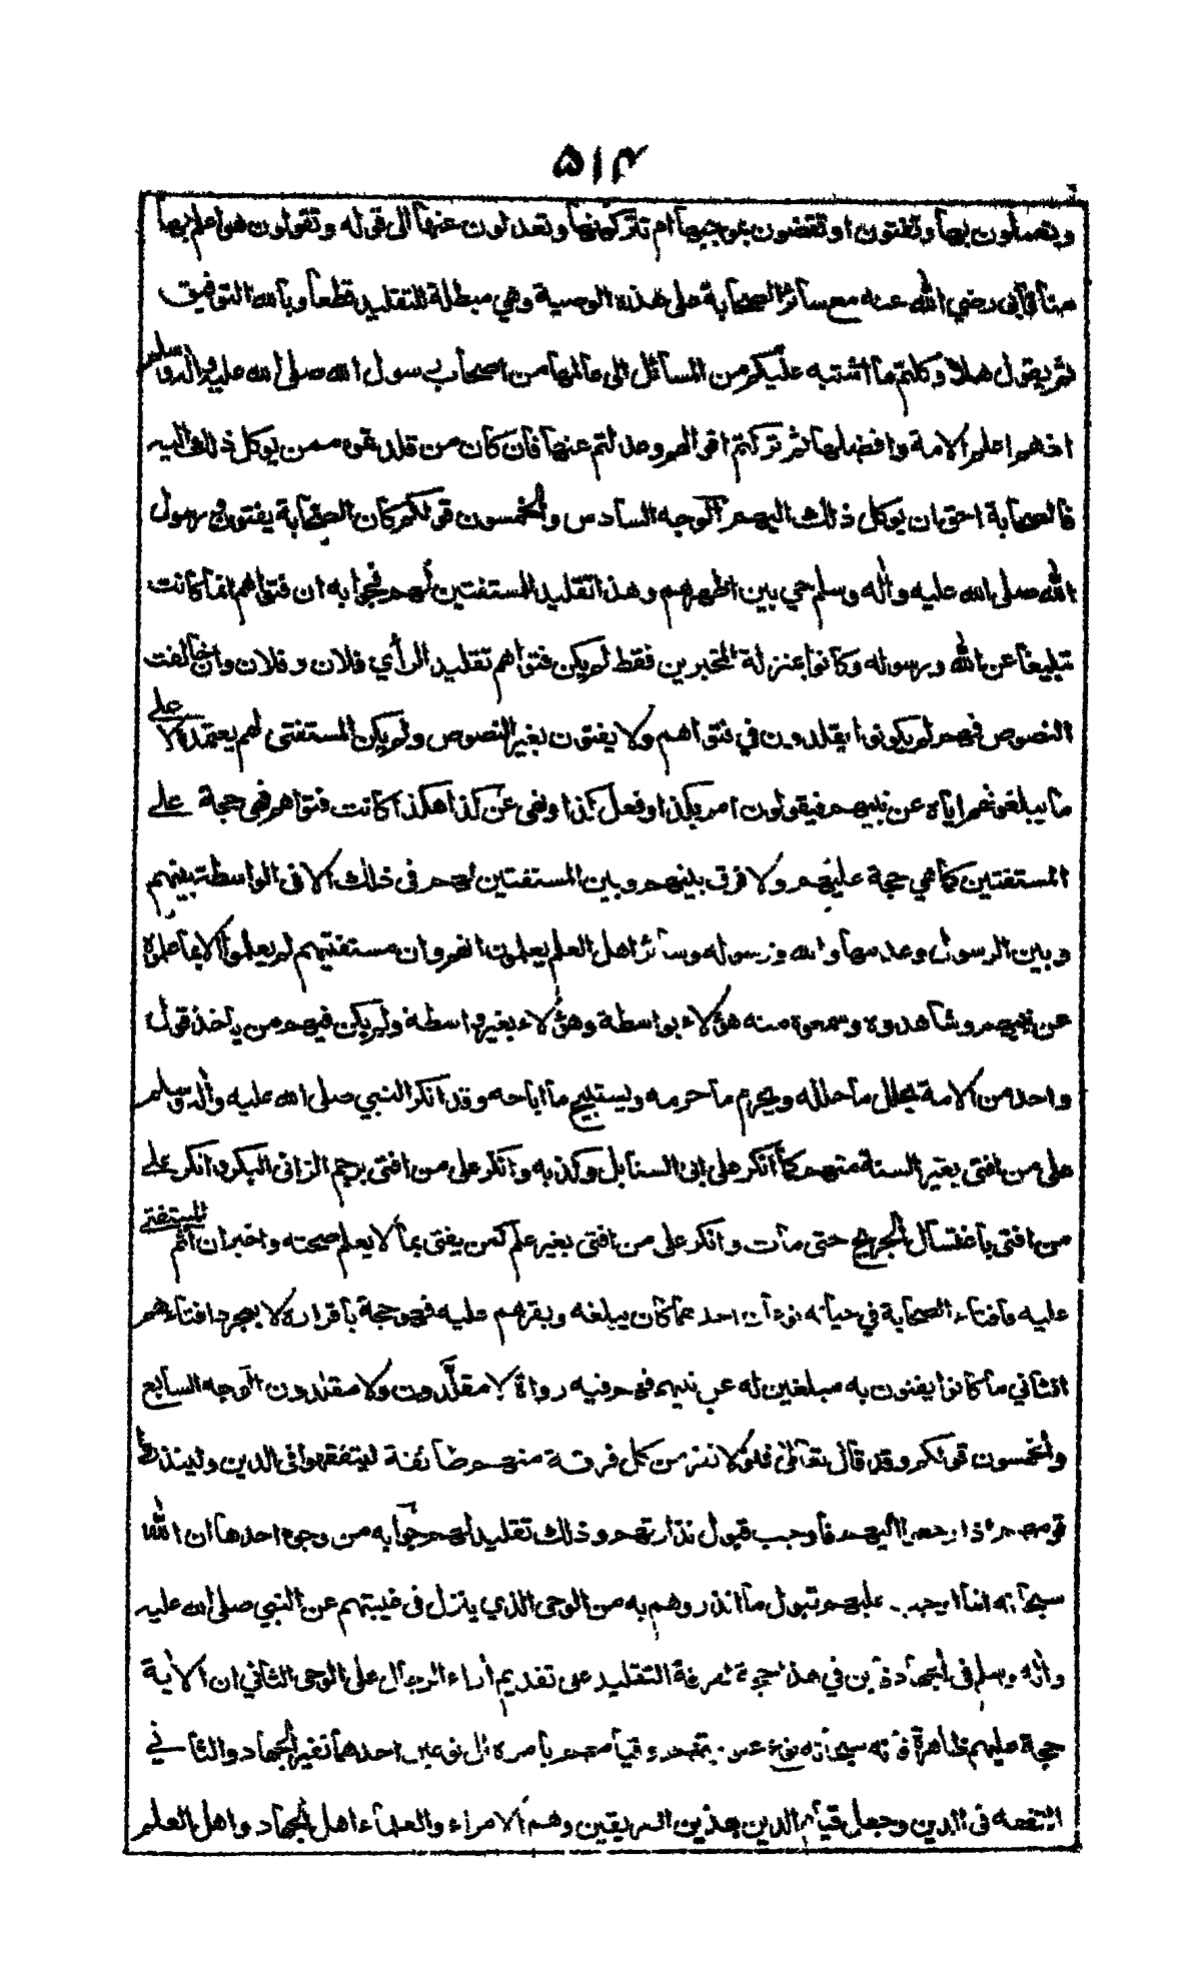 ۵۱۴
وتعملون بها وتفتون او تقضون بموجبها ام تتركونها وتعدلون عنها الى قوله وتقولون هو اعلم بها
منا فأبى رضي الله عنه مع سائر الصحابة على هذه الوصية وهي مبطلة للتقليد قطعا وبالله التوفيق
ثم يقول هلا وكلتم ما اشتبه عليكم من المسائل الى عالمها من اصحاب رسول الله صلى الله عليه واله وسلم
اذ هم اعلم الامة وافضلها ثم تركتم اقوالهم وعدلتم عنها فان كان من قلدتموه ممن يوكل ذلك اليه
فالصحابة احق ان يوكل ذلك اليهم الوجه السادس والخمسون قولكم كان الصحابة يفتون ورسول
الله صلى الله عليه واله وسلم حي بين اظهرهم وهذا تقليد المستفتين لهم فجوابه ان فتواهم انما كانت
تبليغا عن الله ورسوله وكانوا بمنزلة المخبرين فقط لم يكن فتواهم تقليد الرأي فلان وفلان وان خالفت
النصوص فهم لم يكونوا يقلدون في فتواهم ولا يفتون بغير النصوص ولم يكن المستفتي لهم يعتمد الا على
ما يبلغونهم اياه عن نبيهم فيقولون امر بكذا وفعل كذا ونهى عن كذا هكذا كانت فتواهم فهي حجة على
المستفتين كما هي حجة عليهم ولا فرق بينهم وبين المستفتين لهم في ذلك الا في الواسطة بينهم
وبين الرسول وعدمها والله ورسوله وسائر اهل العلم يعلمون انهم وان مستفتيهم لم يعلموا الا بما علموه
عن نبيهم وشاهدوه وسمعوه منه هؤلاء بواسطة وهؤلاء بغير واسطة ولم يكن فيهم من يأخذ قول
واحد من الامة يحلل ما حلله ويحرم ما حرمه ويستبيح ما اباحه وقد انكر النبي صلى الله عليه واله وسلم
على من افتى بغير السنة منهم كما انكر على ابى السنابل وكذبه وانكر على من افتى برجم الزانى البكر وانكر على
من افتى باغتسال الجريح حتى مات وانكر على من افتى بغير علم كمن يفتى بما لا يعلم صحته واخبر ان اثم المستفتى
عليه فافتاء الصحابة في حياته نوعان احدهما كان يبلغه ويقرهم عليه فهو حجة باقراره لا بمجرد افتاءهم
الثاني ما كانوا يفتون به مبلغين له عن نبيهم فهم فيه رواة لا مقلدون ولا مقلدون الوجه السابع
والخمسون قولكم وقد قال تعالى فلولا نفر من كل فرقة منهم طائفة ليتفقهوا في الدين ولينذروا
قومهم اذا رجعوا اليهم فاوجب قبول نذارتهم وذلك تقليد لهم جوابه من وجوه احدها ان الله
سبحانه انما اوجب عليهم قبول ما انذروهم به من الوحى الذي ينزل في غيبتهم عن النبي صلى الله عليه
واله وسلم في الجهاد فأين في هذا حجة لفرقة التقليد على تقديم اراء الرجال على الوحى الثاني ان الاية
حجة عليهم ظاهرة فانه سبحانه نوع قيامهم بامره الى نوعين احدهما نفير الجهاد والثاني
التفقه في الدين وجعل قيام الدين بهذين الفريقين وهم الامراء والعلماء اهل الجهاد واهل العلم